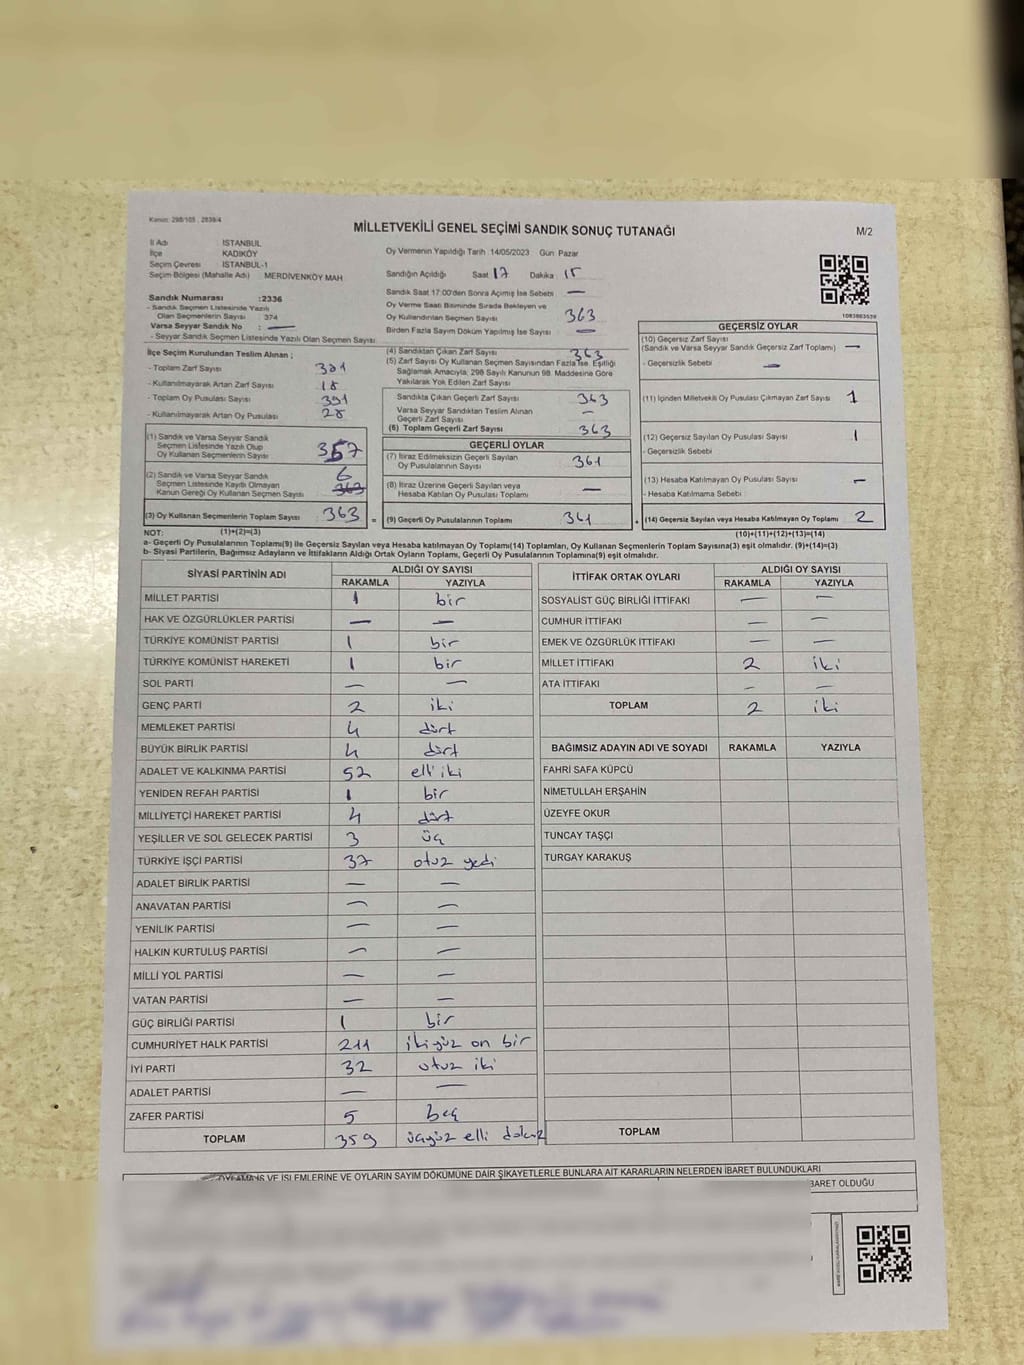 Kanun: 298/105 , 2839/4
MİLLETVEKİLİ GENEL SEÇİMİ SANDIK SONUÇ TUTANAĞI
M/2
İl Adı İSTANBUL
İlçe KADIKÖY
Seçim Çevresi : İSTANBUL-1
Seçim Bölgesi (Mahalle Adı) : MERDİVENKÖY MAH
Oy Vermenin Yapıldığı Tarih :14/05/2023 Gün: Pazar
Sandığın Açıldığı Saat: 17 Dakika : 15
Sandık Saat 17:00'den Sonra Açılmış İse Sebebi : —
Oy Verme Saati Bitiminde Sırada Bekleyen ve
Oy Kullandırılan Seçmen Sayısı : 363
Birden Fazla Sayım Döküm Yapılmış İse Sayısı : —
Sandık Numarası :2336
- Sandık Seçmen Listesinde Yazılı
Olan Seçmenlerin Sayısı : 374
Varsa Seyyar Sandık No : —
- Seyyar Sandık Seçmen Listesinde Yazılı Olan Seçmen Sayısı:
İlçe Seçim Kurulundan Teslim Alınan ;
- Toplam Zarf Sayısı : 381
- Kullanılmayarak Artan Zarf Sayısı : 18
- Toplam Oy Pusulası Sayısı : 391
- Kullanılmayarak Artan Oy Pusulası : 28
(1) Sandık ve Varsa Seyyar Sandık
Seçmen Listesinde Yazılı Olup
Oy Kullanan Seçmenlerin Sayısı : 357
(2) Sandık ve Varsa Seyyar Sandık
Seçmen Listesinde Kaydı Olmayan
Kanun Gereği Oy Kullanan Seçmen Sayısı : 6
363
(3) Oy Kullanan Seçmenlerin Toplam Sayısı : 363
(4) Sandıktan Çıkan Zarf Sayısı : 363
(5) Zarf Sayısı Oy Kullanan Seçmen Sayısından Fazla İse, Eşitliği
Sağlamak Amacıyla; 298 Sayılı Kanunun 98. Maddesine Göre
Yakılarak Yok Edilen Zarf Sayısı
Sandıkta Çıkan Geçerli Zarf Sayısı : 363
Varsa Seyyar Sandıktan Teslim Alınan
Geçerli Zarf Sayısı : —
(6) Toplam Geçerli Zarf Sayısı : 363
GEÇERLİ OYLAR
(7) İtiraz Edilmeksizin Geçerli Sayılan
Oy Pusulalarının Sayısı : 361
(8) İtiraz Üzerine Geçerli Sayılan veya
Hesaba Katılan Oy Pusulası Toplamı : —
= (9) Geçerli Oy Pusulalarının Toplamı : 361
1083863539
GEÇERSİZ OYLAR
(10) Geçersiz Zarf Sayısı
(Sandık ve Varsa Seyyar Sandık Geçersiz Zarf Toplamı) : —
- Geçersizlik Sebebi : —
(11) İçinden Milletvekili Oy Pusulası Çıkmayan Zarf Sayısı : 1
(12) Geçersiz Sayılan Oy Pusulası Sayısı : 1
- Geçersizlik Sebebi :
(13) Hesaba Katılmayan Oy Pusulası Sayısı : —
- Hesaba Katılmama Sebebi :
+ (14) Geçersiz Sayılan veya Hesaba Katılmayan Oy Toplamı : 2
NOT: (1)+(2)=(3)
(10)+(11)+(12)+(13)=(14)
a- Geçerli Oy Pusulalarının Toplamı(9) ile Geçersiz Sayılan veya Hesaba katılmayan Oy Toplamı(14) Toplamları, Oy Kullanan Seçmenlerin Toplam Sayısına(3) eşit olmalıdır. (9)+(14)=(3)
b- Siyasi Partilerin, Bağımsız Adayların ve İttifakların Aldığı Ortak Oyların Toplamı, Geçerli Oy Pusulalarının Toplamına(9) eşit olmalıdır.
SİYASİ PARTİNİN ADI ALDIĞI OY SAYISI
RAKAMLA YAZIYLA
MİLLET PARTİSİ 1 bir
HAK VE ÖZGÜRLÜKLER PARTİSİ — —
TÜRKİYE KOMÜNİST PARTİSİ 1 bir
TÜRKİYE KOMÜNİST HAREKETİ 1 bir
SOL PARTİ — —
GENÇ PARTİ 2 iki
MEMLEKET PARTİSİ 4 dört
BÜYÜK BİRLİK PARTİSİ 4 dört
ADALET VE KALKINMA PARTİSİ 52 elli iki
YENİDEN REFAH PARTİSİ 1 bir
MİLLİYETÇİ HAREKET PARTİSİ 4 dört
YEŞİLLER VE SOL GELECEK PARTİSİ 3 üç
TÜRKİYE İŞÇİ PARTİSİ 37 otuz yedi
ADALET BİRLİK PARTİSİ — —
ANAVATAN PARTİSİ — —
YENİLİK PARTİSİ — —
HALKIN KURTULUŞ PARTİSİ — —
MİLLİ YOL PARTİSİ — —
VATAN PARTİSİ — —
GÜÇ BİRLİĞİ PARTİSİ 1 bir
CUMHURİYET HALK PARTİSİ 211 ikiyüz on bir
İYİ PARTİ 32 otuz iki
ADALET PARTİSİ — —
ZAFER PARTİSİ 5 beş
TOPLAM 359 üçyüz elli dokuz
İTTİFAK ORTAK OYLARI ALDIĞI OY SAYISI
RAKAMLA YAZIYLA
SOSYALİST GÜÇ BİRLİĞİ İTTİFAKI — —
CUMHUR İTTİFAKI — —
EMEK VE ÖZGÜRLÜK İTTİFAKI — —
MİLLET İTTİFAKI 2 iki
ATA İTTİFAKI — —
TOPLAM 2 iki
BAĞIMSIZ ADAYIN ADI VE SOYADI RAKAMLA YAZIYLA
FAHRİ SAFA KÜPCÜ
NİMETULLAH ERŞAHİN
ÜZEYFE OKUR
TUNCAY TAŞÇI
TURGAY KARAKUŞ
TOPLAM
OYLAMA İŞ VE İŞLEMLERİNE VE OYLARIN SAYIM DÖKÜMÜNE DAİR ŞİKAYETLERLE BUNLARA AİT KARARLARIN NELERDEN İBARET BULUNDUKLARI
İBARET OLDUĞU